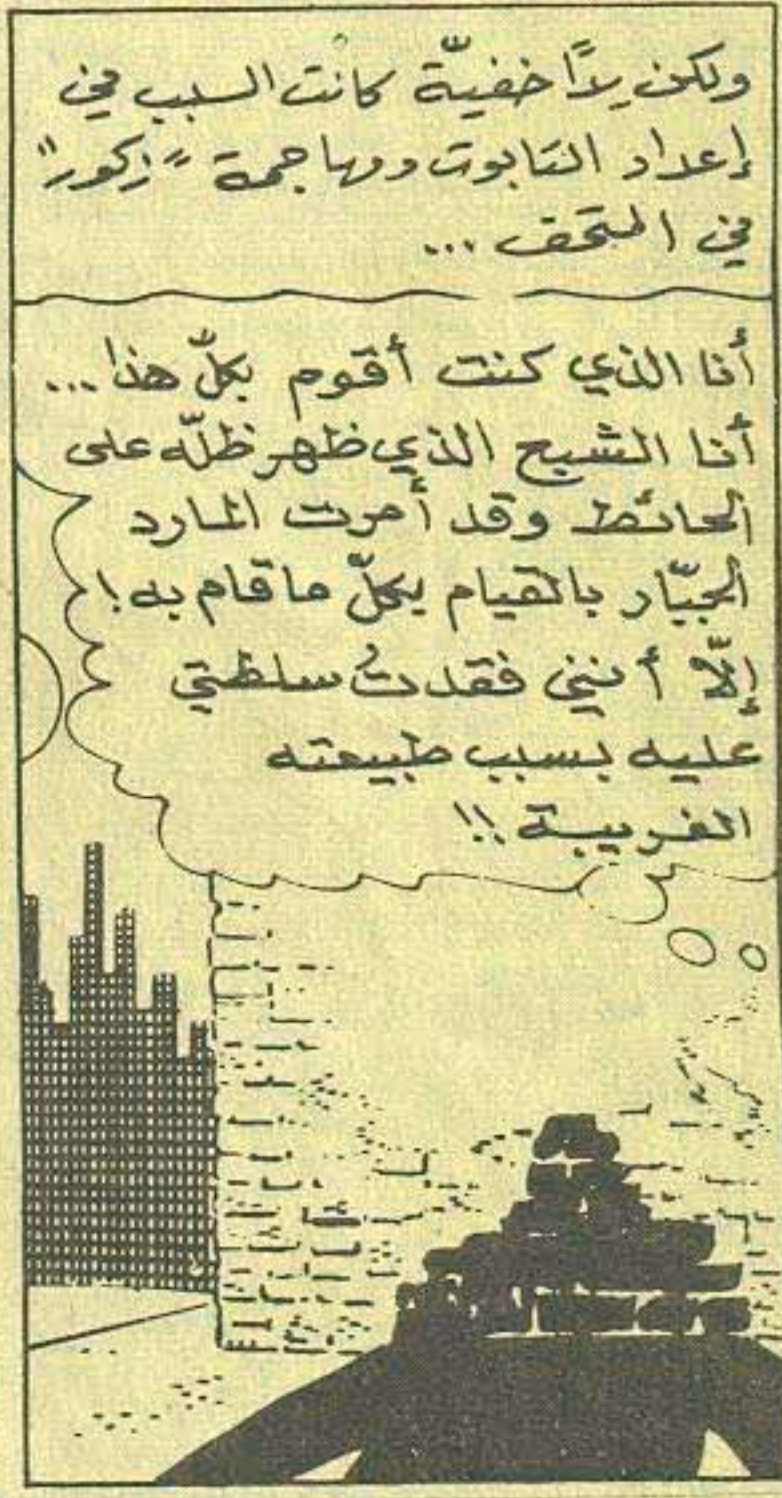 ولكن يدًا خفيّة كانت السبب في
إعداد التابوت ومهاجمة "زكور"
في المتحف ...
أنا الذي كنت أقوم بكلّ هذا...
أنا الشبح الذي ظهر ظلّه على
الحائط وقد أمرت المارد
الجبّار بالقيام بكلّ ما قام به!
إلّا أنني فقدتُ سلطتي
عليه بسبب طبيعته
الغريبة !!